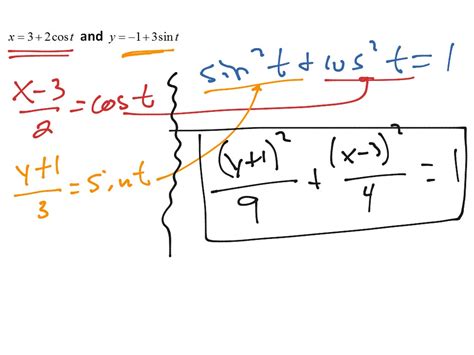 x = 3 + 2cos t and y = −1 + 3sin t
sin² t + cos² t = 1
x-3/2 = cos t
y+1/3 = sin t
(y+1)²/9 + (x-3)²/4 = 1